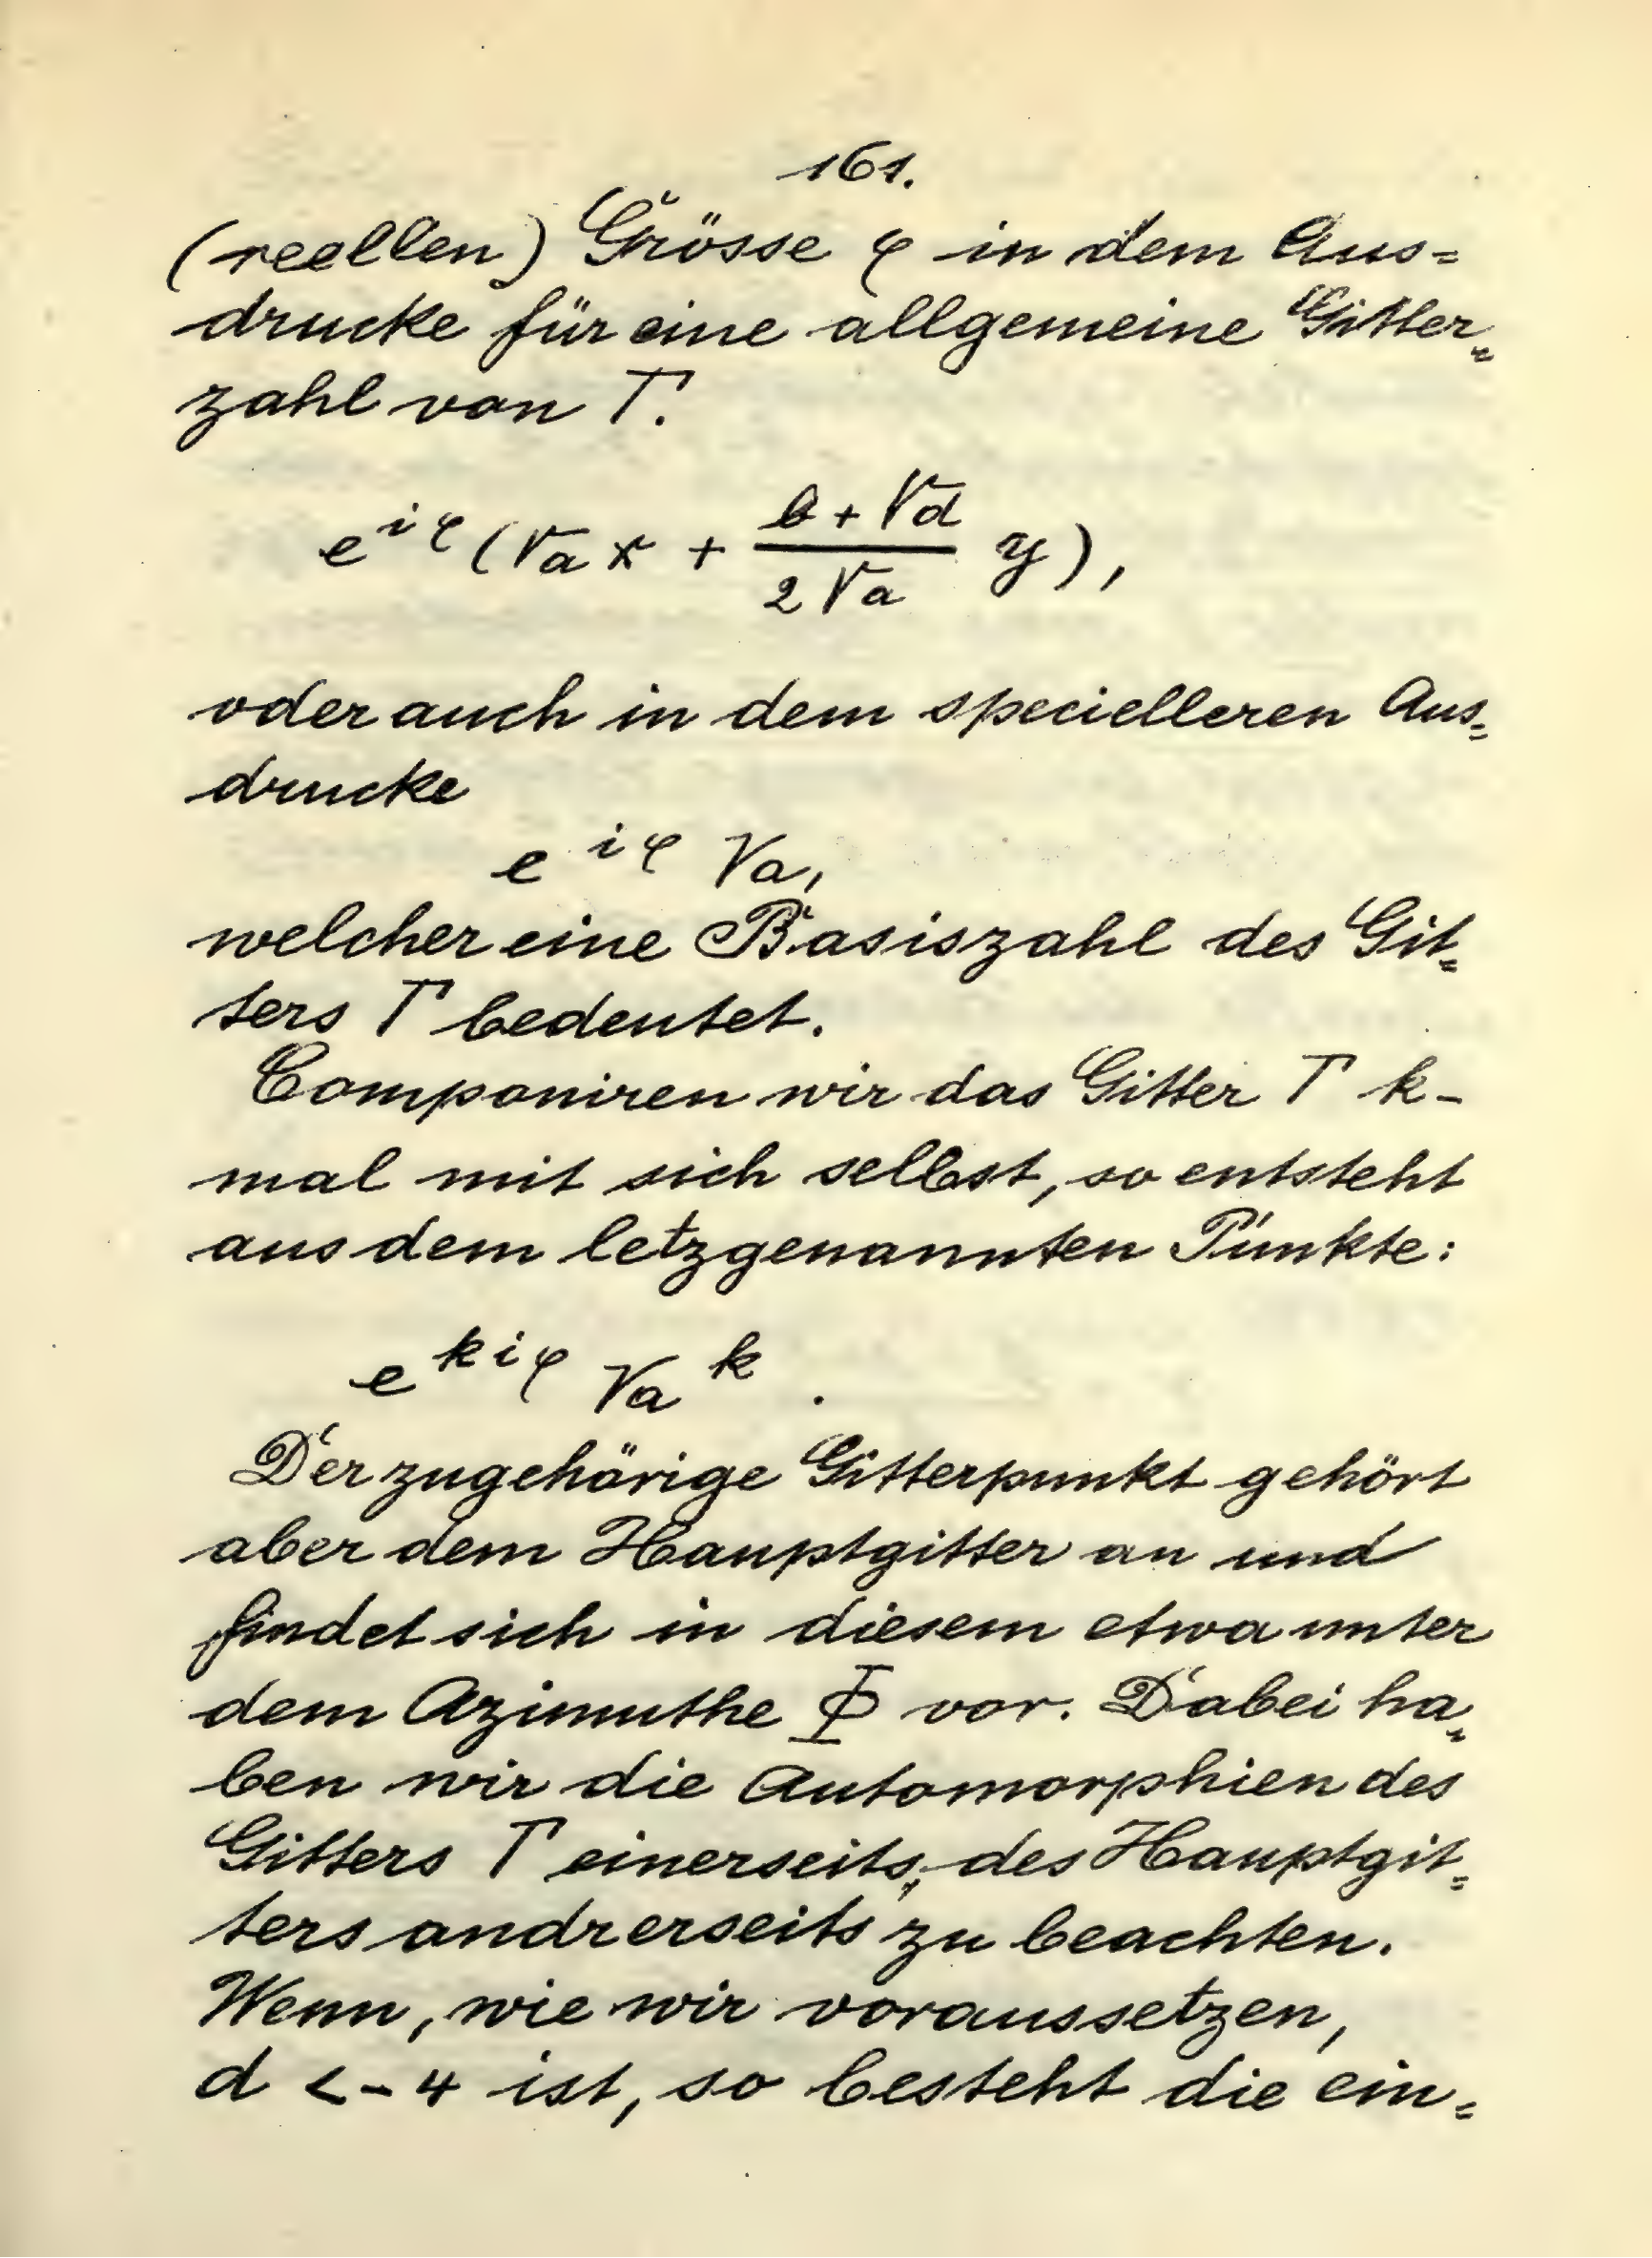 161.
(reellen) Grösse φ in dem Aus=
drucke für eine allgemeine Gitter=
zahl von Γ.
e^{iφ} (√a x + \frac{b + √d}{2√a} y),
oder auch in dem specielleren Aus=
drucke
e^{iφ} √a,
welcher eine Basiszahl des Git=
ters Γ bedeutet.
Componiren wir das Gitter Γ k-
mal mit sich selbst, so entsteht
aus dem letzgenannten Punkte:
e^{kiφ} √a^k.
Der zugehörige Gitterpunkt gehört
aber dem Hauptgitter an und
findet sich in diesem etwa unter
dem Azimuthe Φ vor. Dabei ha=
ben wir die Automorphien des
Gitters Γ einerseits, des Hauptgit=
ters andrerseits zu beachten.
Wenn, wie wir voraussetzen,
d < -4 ist, so besteht die ein=